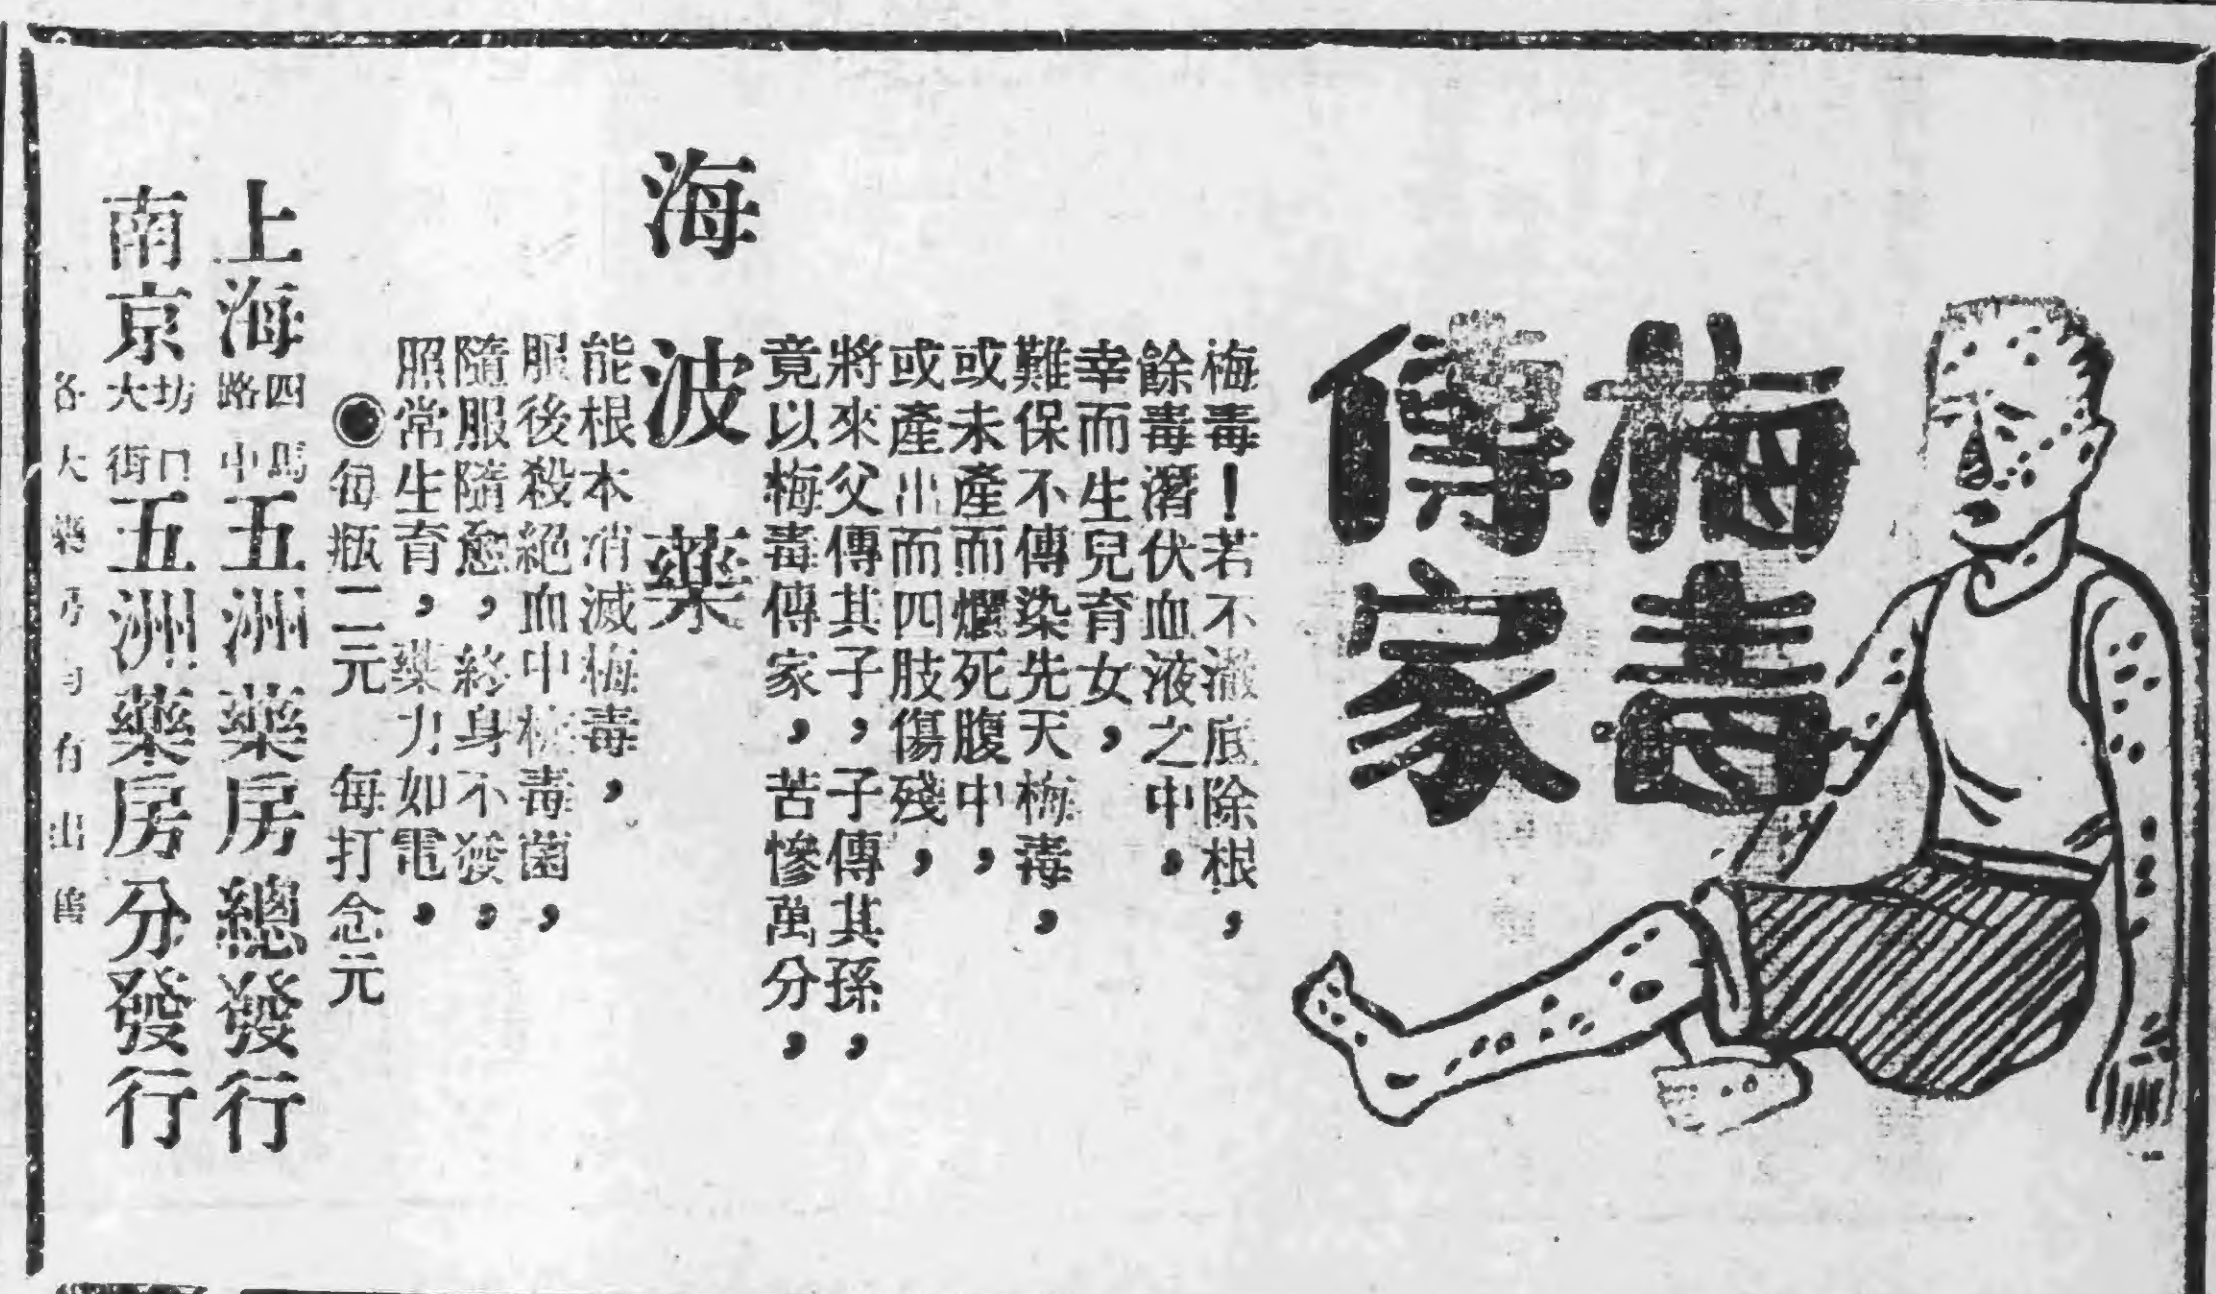 梅毒
傳家
梅毒！若不澈底除根，
餘毒潛伏血液之中，
幸而生兒育女，
難保不傳染先天梅毒，
或未產而爛死腹中，
或產出而四肢傷殘，
將來父傳其子，子傳其孫，
竟以梅毒傳家，苦慘萬分，
海波藥
能根本消滅梅毒，
服後殺絕血中梅毒菌，
隨服隨愈，終身不發，
照常生育，藥力如電，
◉每瓶二元　每打念元
上海四馬路中五洲藥房總發行
南京坊口大街五洲藥房分發行
各大藥房均有出售